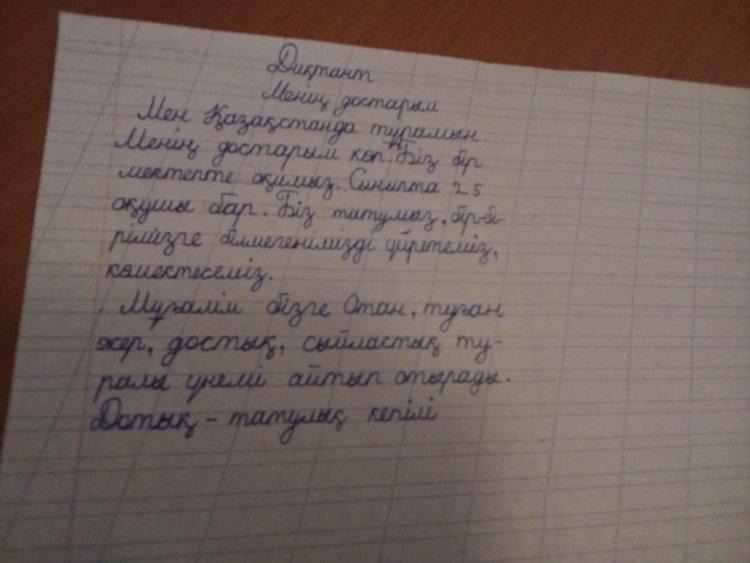 Диқтант
Менің достарым
Мен Қазақстанда тұрамын.
Менің достарым көп. Біз бір
мектепте оқимыз. Сыныпта 25
оқушы бар. Біз татумыз, бір-бі-
рімізге білмегенімізді үйретеміз,
көмектесеміз.
Мұғалім бізге Отан, туған
жер, достық, сыйластық ту-
ралы үнемі айтып отырады.
Дотық - татулық кепілі